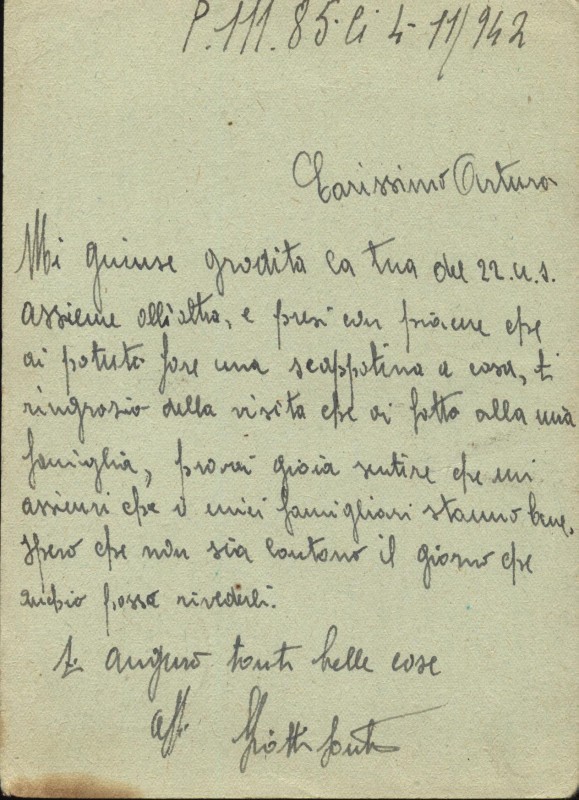 P.M. 85. li 4-11/942
Carissimo Arturo
Mi giunse gradita la tua del 22.u.s.
assieme all'altra, e presi con piacere che
ai potuto fare una scappatina a casa, ti
ringrazio della visita che ai fatto alla mia
famiglia, provai gioia sentire che mi
assicuri che i miei famigliari stanno bene,
spero che non sia lontano il giorno che
anchio possa rivederli.
Ti auguro tante belle cose
aff.